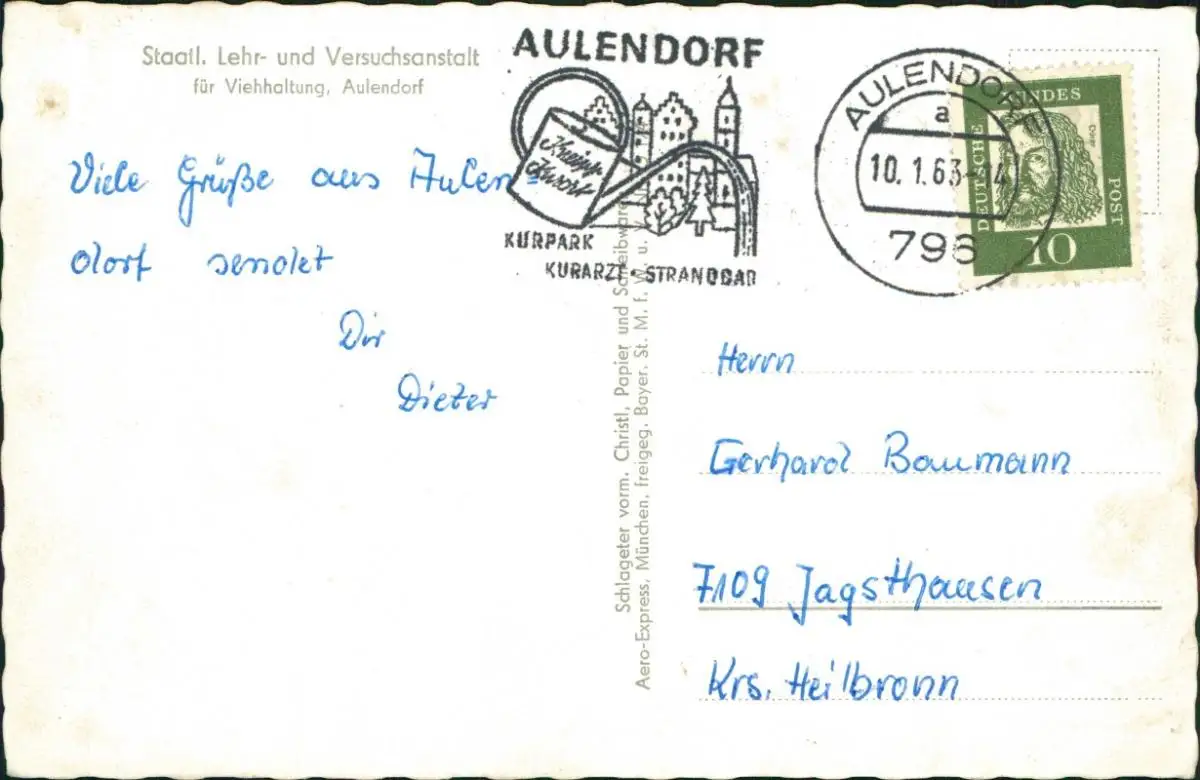 Staatl. Lehr- und Versuchsanstalt
für Viehhaltung, Aulendorf
Viele Grüße aus Aulen=
dorf sendet
Dir
Dieter
AULENDORF
Kneipp
Kurort
KURPARK
KURARZT · STRANDBAD
AULENDORF
a
10.1.63-14
796
DEUTSCHE BUNDES POST
Dürer
10
Schlageter vorm. Christl, Papier und Schreibwaren
Aero-Express, München, freigeg. Bayer. St. M. f. W. u. V. N
Herrn
Gerhard Baumann
7109 Jagsthausen
Krs. Heilbronn